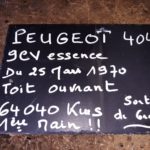 PEUGEOT 404
9cv essence
Du 25 Mars 1970
Toit ouvrant
64040 Kms
1ère Main !!
Sort
de